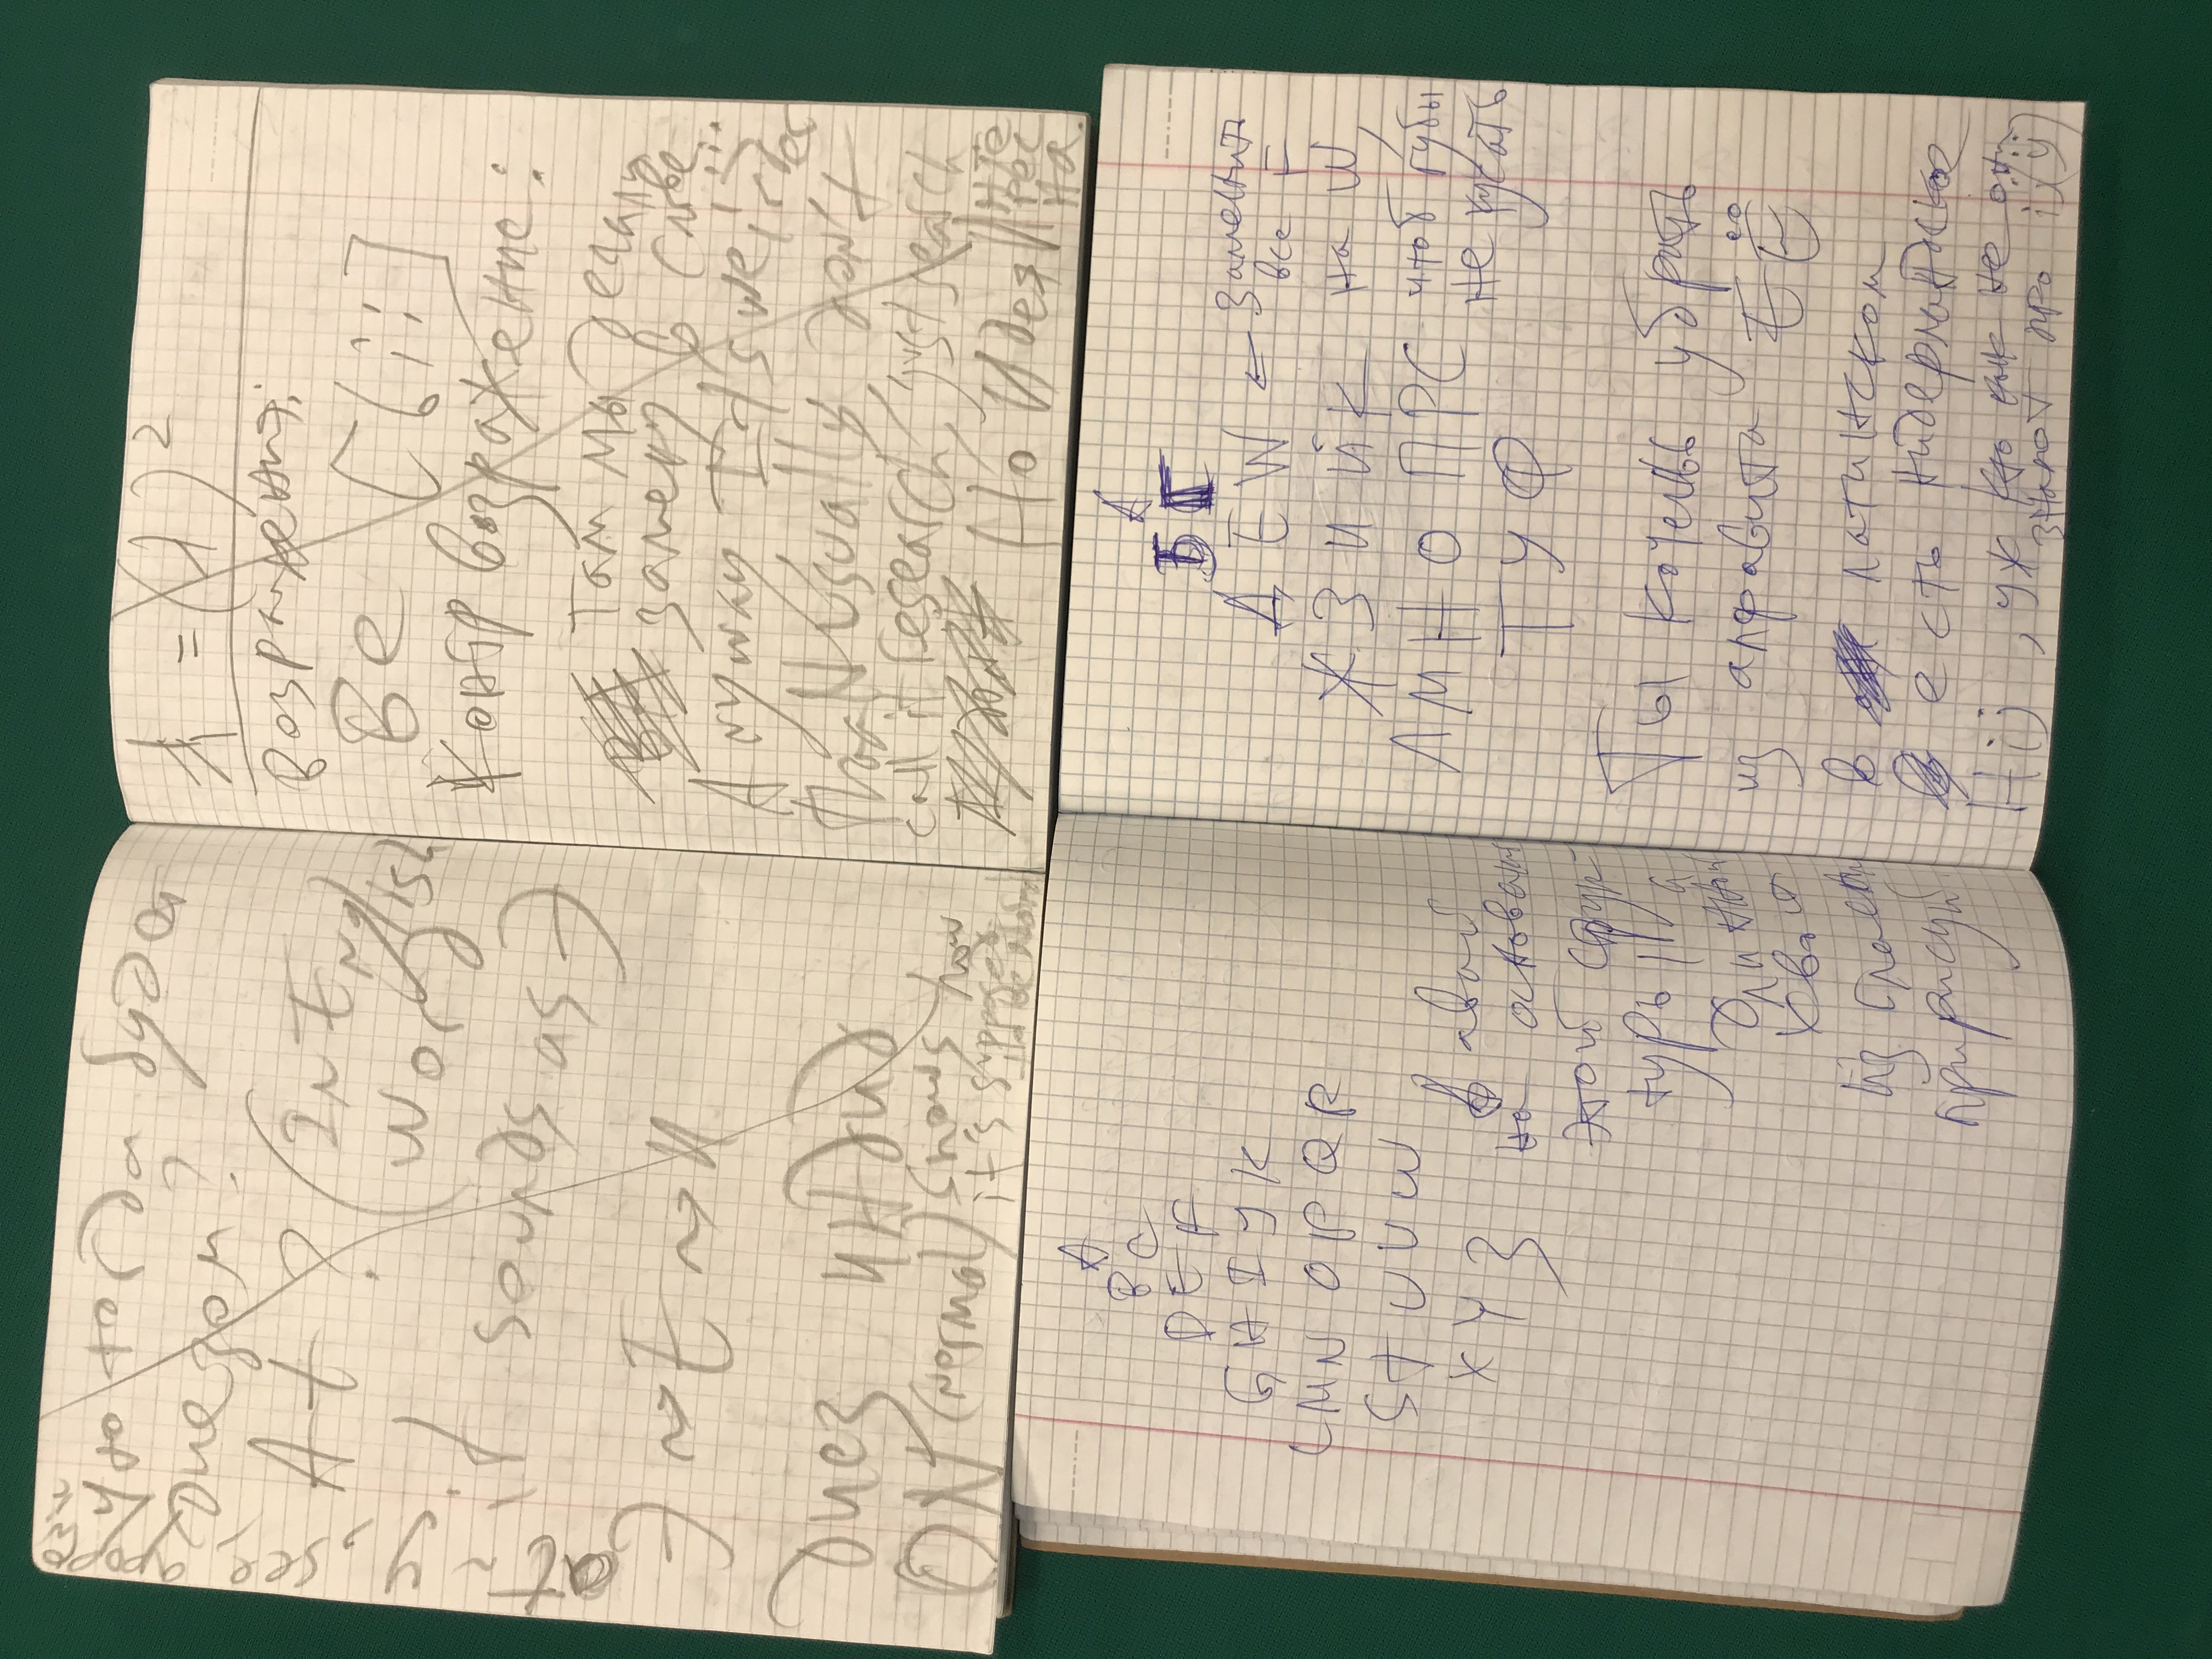 Что тогда будет
диезом?
At? (In English
word
it sounds as Э
Э ~> E ~> И
диез индид
ON (normal) shows how
it's supposed
at ~ y, see,
= (λ)²
возражения:
Be [bii]
Контр возражение:
там мы делали
замену в слове...
Anyway It's weirder
than usually, don't
call it research, just search
Но Идея Инте
рес
на.
A
B C
D E F
G H I Y K
L M N O P Q R
S T U V W
X Y Z
Давай
на основании
этой струк
туры,
а
длинный
хвост
пририсуй
A
Б Г
Д E W ← Заменить
все F
Ж З И Й К на W,
Л М Н О П Р С чтоб губы
не кусать
Т У Ф
Ты хочешь убрать
из алфавита E Ё
в латинском
есть нидерландское
Hij, уж кто как не они
знают про ij (ÿ)